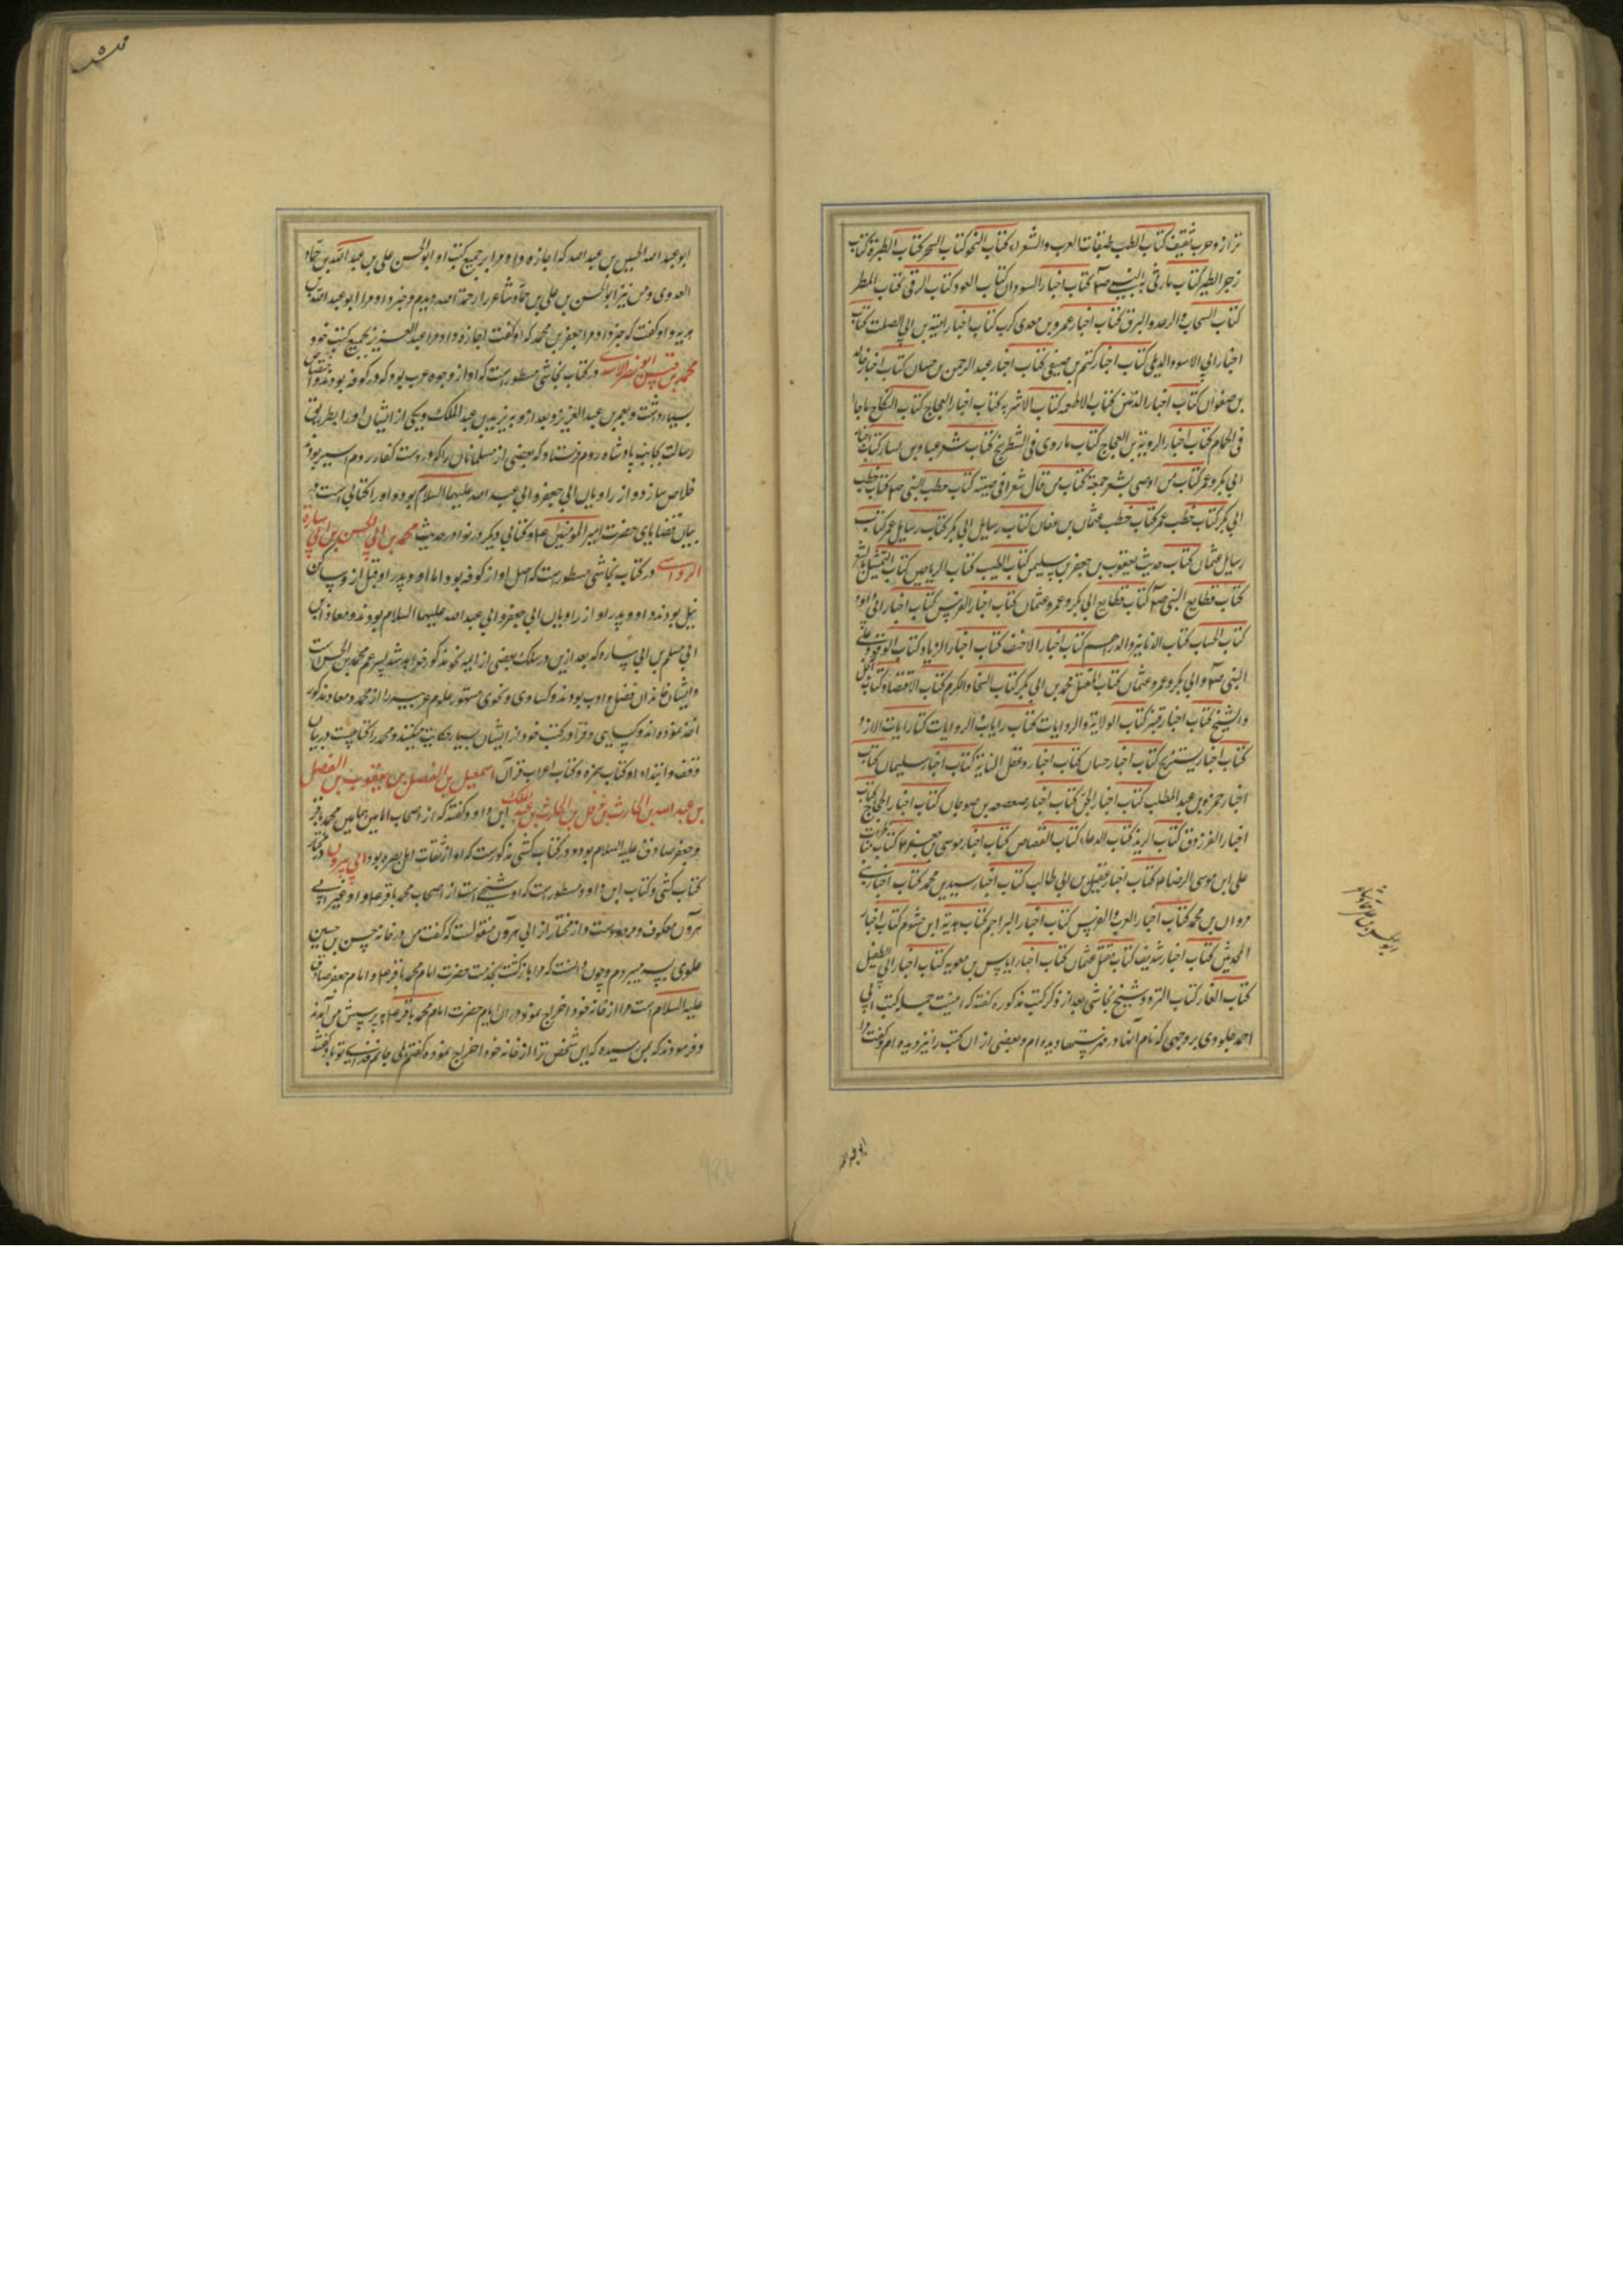 نزار و حرب ثقیف کتاب الطب طبقات العرب والشعراء کتاب النحو کتاب السحر کتاب الطیرة کتاب
زجر الطیر کتاب مارثی به النبی صلعم کتاب اخبار السودان کتاب العود کتاب الرقی کتاب المطر
کتاب السحاب و الرعد و البرق کتاب اخبار عمرو بن معدی کرب کتاب اخبار امیة بن ابی الصلت کتاب
اخبار ابی الاسود الدیلی کتاب اخبار اکثم بن صیفی کتاب اخبار عبد الرحمن بن حسان کتاب اخبار خالد
بن صفوان کتاب اخبار الدنفین کتاب الاطعمه کتاب الاشربه کتاب اخبار العجاج کتاب النکاح ماجا
فی الحمام کتاب اخبار الروبة بن العجاج کتاب ماروی فی الشطرنج کتاب شعر عباد بن بشار کتاب اخبار
ابی بکر و عمر کتاب من اوصی بشعر جمعه کتاب من قال شعرا فی وصیته کتاب خطب النبی ص کتاب خطب
ابی بکر کتاب خطب عمر کتاب خطب عثمان بن عفان کتاب رسایل ابی بکر کتاب رسایل عمر کتاب
رسایل عثمان کتاب حدیث یعقوب بن جعفر بن سلیمن کتاب الطیب کتاب الریاحین کتاب التمثیل بالشعر
کتاب قطایع النبی صلعم کتاب قطایع ابی بکر و عمر و عثمان کتاب اخبار الفرس کتاب اخبار ابی داود
کتاب الحساب کتاب الدنانیر والدراهم کتاب اخبار الاحنف کتاب اخبار الزیاد کتاب الوفود علی
النبی صلعم و ابی بکر و عمر و عثمان کتاب مقتل محمد بن ابی بکر کتاب السخا و الکرم کتاب الاقتضاء کتاب البخل
والشیخ کتاب اخبار قنبر کتاب الالویة والرایات کتاب رایات الازد
کتاب اخبار شریح کتاب اخبار حسان کتاب اخبار دغفل النسابة کتاب اخبار سلیمان کتاب
اخبار حمزه بن عبد المطلب کتاب اخبار الجن کتاب اخبار صعصعه بن صوحان کتاب اخبار الحجاج کتاب
اخبار الفرزدق کتاب الزهد کتاب الدعاء کتاب القصاص کتاب اخبار موسی بن جعفر کتاب مناظرات
علی ابن موسی الرضا کتاب اخبار عقیل بن ابی طالب کتاب اخبار سید بن محمد کتاب اخبار بنی
مروان بن محمد کتاب اخبار العرب و الفرس کتاب اخبار البراجم کتاب هدبة ابن خشرم کتاب اخبار
المحدثین کتاب اخبار سدیف کتاب مقتل عثمان کتاب اخبار ایاس بن معویه کتاب اخبار ابی الطفیل
کتاب الغار کتاب القرود و شیخ نجاشی بعد از ذکر کتب مذکوره گفته که اینست جمله کتب ابی
احمد جلودی بر وجهی که نام آنها در فهرستها دیده ام و بعضی از ان کتب را نیز دیده ام و گفت مرا
ابو عبد الله
ابو عبد الله الحسین بن عبد الله که اجازه داد مرا بر جمیع کتب او ابو الحسن علی بن عبد الله بن حماد
العدوی و من نیز ابو الحسن بن علی بن حماد شاعر را رحمة الله دیدم و خبر داد مرا ابو عبد الله بن
هدیه و او گفت که خبر داد مرا جعفر بن محمد که او گفت اجازه داد مرا عبد العزیز بجمیع کتب خود
محمد بن قیس ابو نصر الاسدی در کتاب نجاشی مسطور است که او از وجوه عرب بود که در کوفه بودند و اختصاص
بسیار داشت و بعمر بن عبد العزیز و بعد از و به یزید بن عبد الملک و یکی از ایشان او را بطریق
رسالت بجانب پادشاه روم فرستاد که بعضی از مسلمانان را که در دست کفار روم اسیر بودند
خلاص سازد و از راویان ابی جعفر و ابی عبد الله علیهما السلام بود و او را کتابی است در
بیان قضایای حضرت امیر المومنین و کتابی دیگر در نوادر حدیث محمد بن ابی الحسن بن ابی سارة
الرواسی در کتاب نجاشی مسطور است که اصل او از کوفه بود اما او و پدر او قبل از و ساکن
نیل بودند و او و پدر او از راویان ابی جعفر و ابی عبد الله علیهما السلام بودند و معاذ ابن
ابی مسلم بن ابی ساره که بعد ازین در سلک بعضی از ائمه نحو مذکور خواهد شد پسر عم محمد بن الحسن است
و ایشان خاندان فضل و ادب بودند و کساوی و نحوی مشهور علوم عربیه را از محمد و معاذ مذکور
اخذ نموده اند و کسایی و فرا در کتب خود از ایشان بسیار حکایت میکنند و محمد را کتابیست در بیان
وقف و ابتدا و کتاب همزه و کتاب اعراب قرآن اسمعیل بن الفضل بن یعقوب بن الفضل
بن عبد الله بن الحارث بن نوفل بن الحارث بن عبد المطلب ابن داود گفته که از اصحاب امامین همامین محمد باقر
و جعفر صادق علیه السلام بود و در کتاب کشی مذکور است که او از ثقات اهل بصره بود ابی هرون در مختار
کتاب کشی و کتاب ابن داود مسطور است که او شیخی است از اصحاب محمد باقر و او غیر ابی
هرون مکفوف و مردود است و از مختار از ابی هرون منقولست که گفت من در خانه حسن بن حسین
علوی بسر میبردم و چون دانست که مرا بازگشت بخدمت حضرت امام محمد باقر و امام جعفر صادق
علیه السلام است مرا از خانه خود اخراج نمود در ان ایام حضرت امام محمد باقر به پرسیش من آمدند
و فرمودند که بمن رسیده که این شخص ترا از خانه خود اخراج نموده گفتم بلی جانم فدای تو باد گفتند